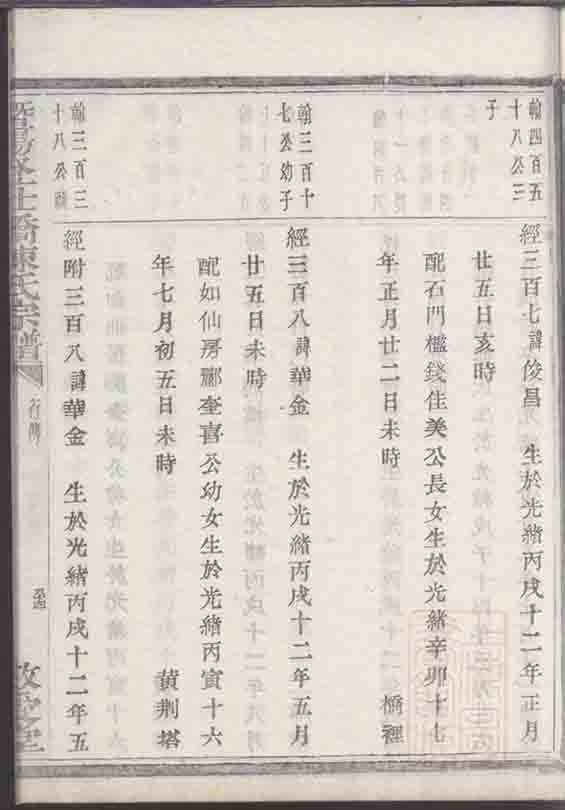 翰四百五
十八公三
子
經三百七諱俊昌 生於光緒丙戌十二年正月
廿五日亥時
配石門檻錢佳美公長女生於光緒辛卯十七
年正月廿二日未時 橋裡
翰三百十
七公幼子
經三百八諱華金 生於光緒丙戌十二年五月
廿五日未時
配如仙房酈奎喜公幼女生於光緒丙寅十六
年七月初五日未時 黃荆塔
翰三百三
十八公
經附三百八諱華金 生於光緒丙戌十二年五
橋陳氏宗譜 行傳